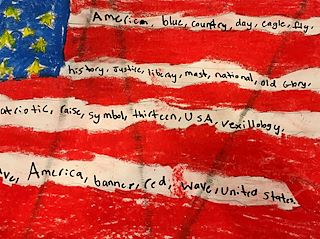 America, blue, country, day, eagle, fly,
history, justice, mast, national, old Glory,
atriotic, raise, symbol, thirteen, USA, vexillology,
ve, America, banner, red, wave, United States.